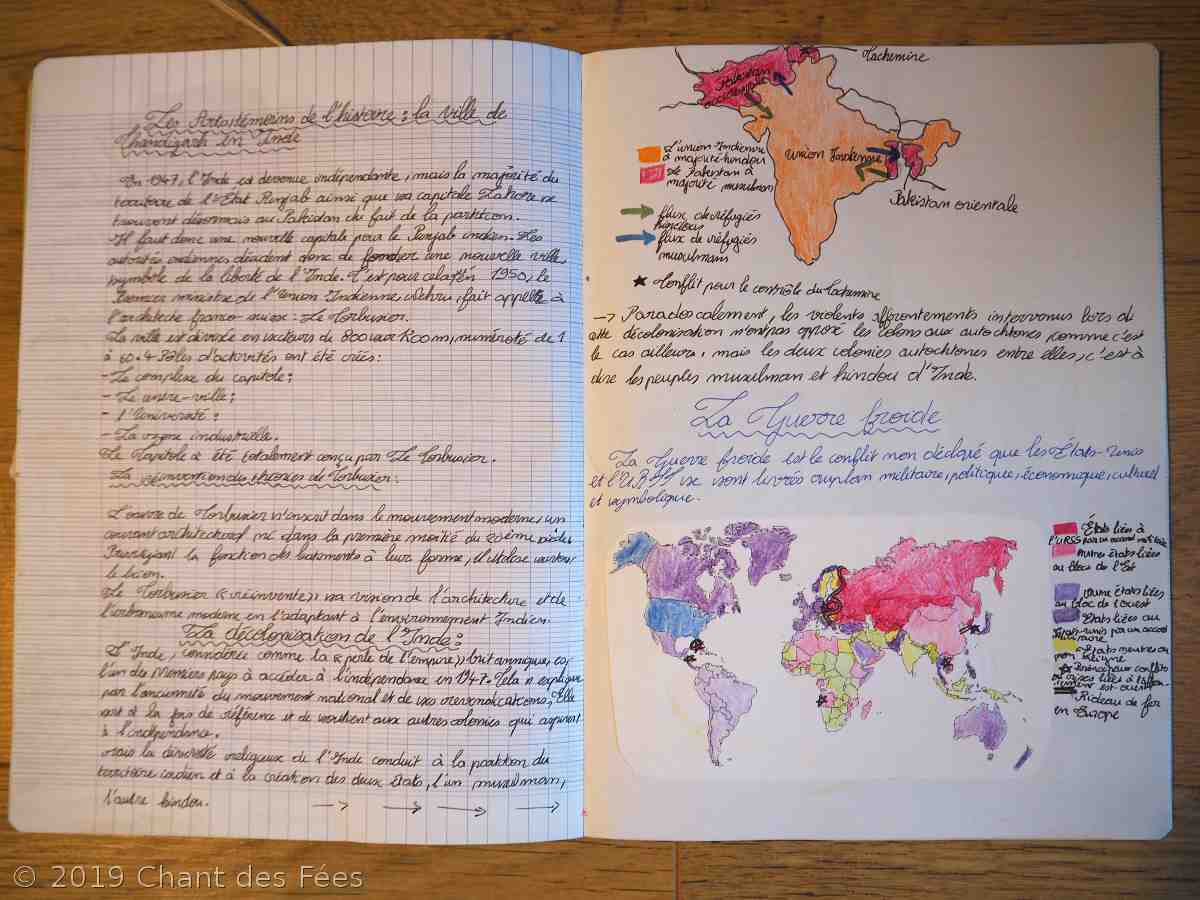 Les Arts témoins de l'histoire : la ville de
Chandigarh en Inde
En 1947, l'Inde est devenue indépendante, mais la majorité du
de l'État Punjab ainsi que sa capitale Lahore se
trouvent désormais au Pakistan du fait de la partition.
-Il faut donc une nouvelle capitale pour le Punjab indien. Les
autorités indiennes décident donc de fonder une nouvelle ville,
symbole de la liberté de l'Inde. C'est pour cela en 1950, le
Premier ministre de l'Union Indienne, Nehru, fait appelle à
l'architecte franco-suisse : Le Corbusier.
La ville est divisée en secteurs de 800 sur 1200 m, numéroté de 1
à 60. 4 Pôles d'activités ont été créés:
- Le complexe du capitole ;
- Le centre-ville ;
- l'Université ;
- La zone industrielle.
Le Capitole a été totalement conçu par Le Corbusier.
La réinvention des théories de Corbusier :
L'œuvre de Corbusier s'inscrit dans le mouvement moderne, un
courant architectural né dans la première moitié du 20ème siècle.
la fonction des bâtiments à leur forme, il utilise surtout
le béton.
Le Corbusier « réinvente » sa vision de l'architecture et de
l'urbanisme moderne en l'adaptant à l'environnement Indien.
La décolonisation de l'Inde :
L'Inde, considéré comme la « perle de l'empire » britannique, est
l'un des Premiers pays à accéder à l'indépendance en 1947. Cela s'explique
par l'ancienneté du mouvement national et de ses revendications. Elle
sert à la fois de référence et de soutient aux autres colonies qui aspirent
à l'indépendance.
Mais la diversité religieuse de l'Inde conduit à la partition du
territoire indien et à la création des deux états, l'un musulman,
l'autre hindou. → → → →
Cachemire
Pakistan
occidentale
Union Indienne
L'union Indienne
à majorité hindou
Le Pakistan à
majorité musulman
Pakistan orientale
→ flux de réfugiés
hindous
→ flux de réfugiés
musulmans
★ Conflit pour le contrôle du Cachemire
→ Paradoxalement, les violents affrontements intervenus lors de
cette décolonisation n'ont pas opposé les colons aux autochtones, comme c'est
le cas ailleurs, mais les deux colonies autochtones entre elles, c'est à
dire les peuples musulman et hindou d'Inde.
La Guerre froide
La Guerre froide est le conflit non déclaré que les États-Unis
et l'URSS se sont livrés au plan militaire, politique, économique, culturel
et symbolique.
États liées à
l'URSS par un accord militaire
Autres états liées
au blocs de l'Est
Autre états liées
au bloc de l'ouest
États liées au
États-unis par un accord
militaire
États neutres ou
non aligné
★ Principaux conflits
ou crises liées à
est-ouest
Rideau de fer
en Europe
© 2019 Chant des Fées